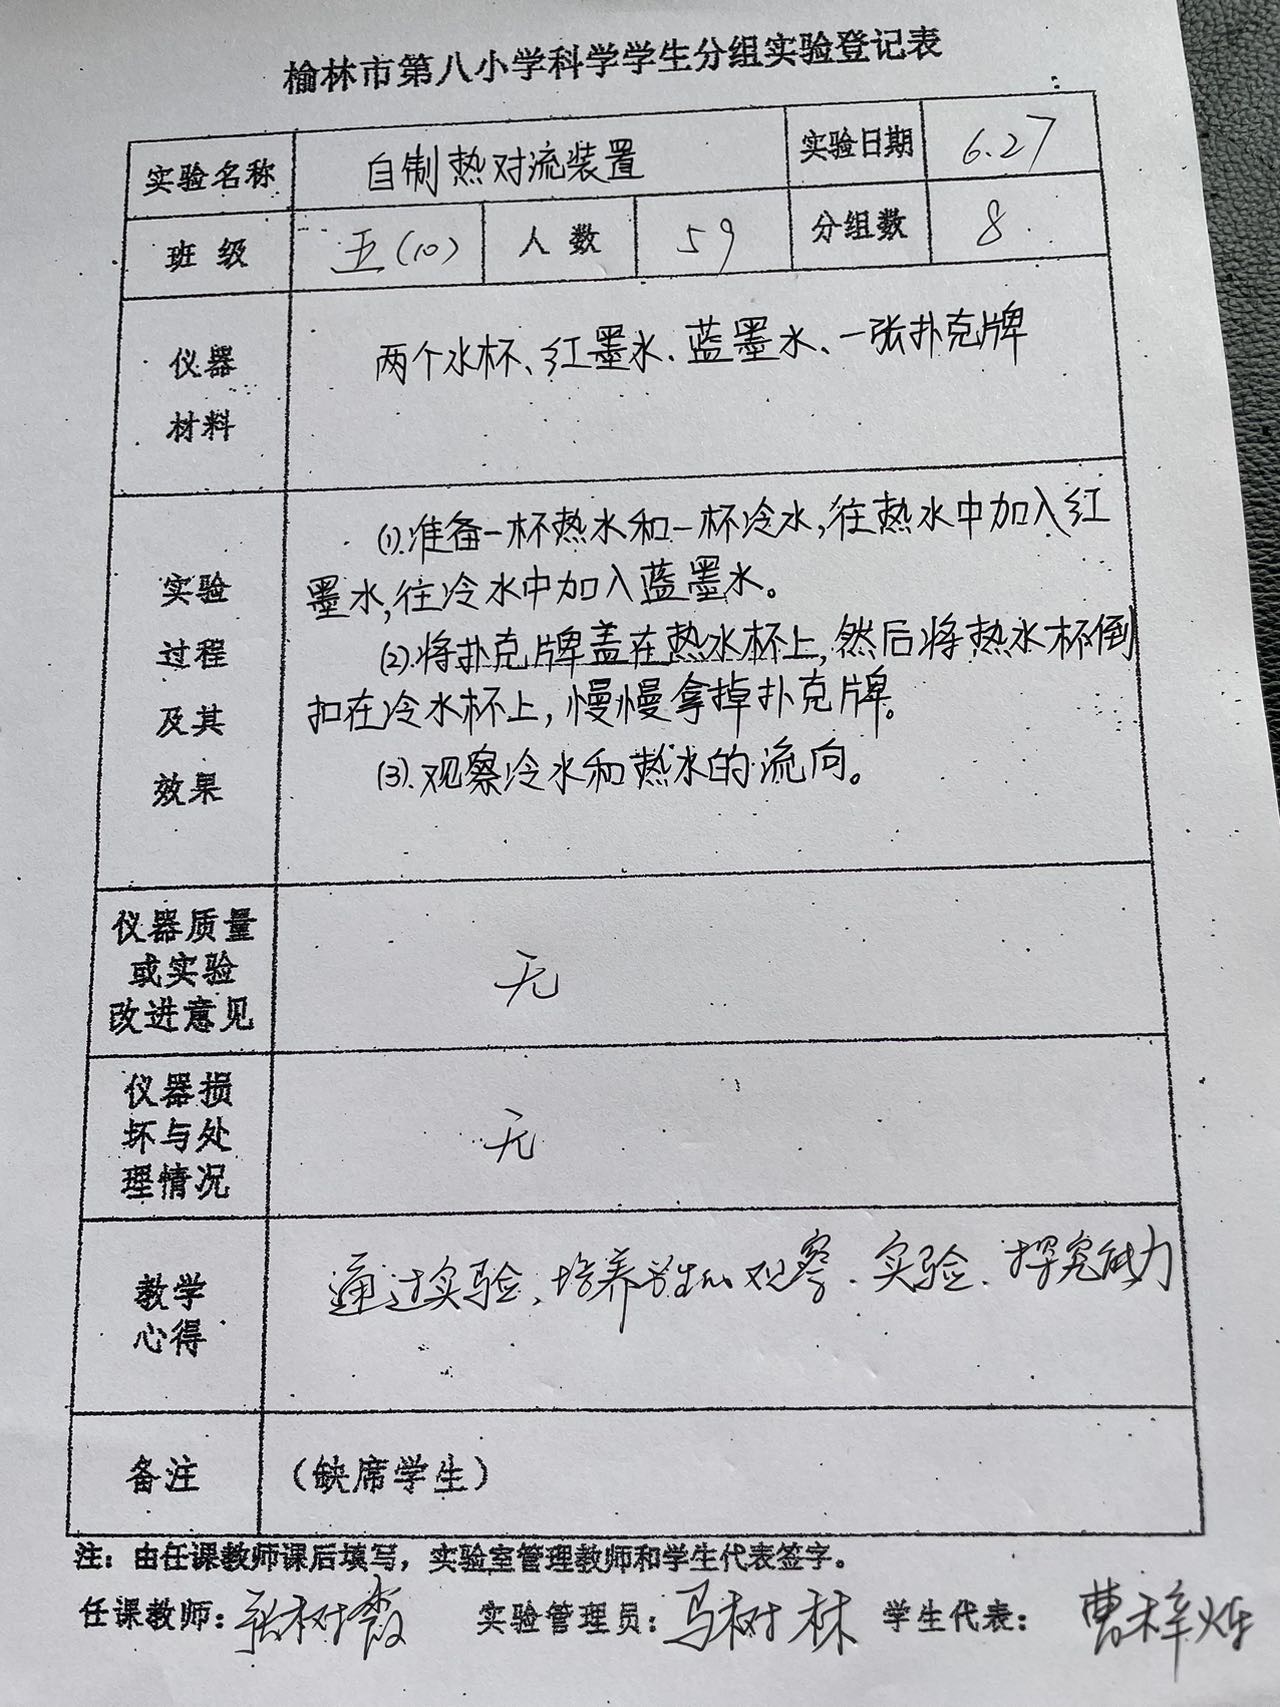 榆林市第八小学科学学生分组实验登记表
实验名称 自制热对流装置 实验日期 6.27
班级 五(10) 人数 59 分组数 8
仪器
材料
两个水杯、红墨水、蓝墨水、一张扑克牌
实验
过程
及其
效果
(1).准备一杯热水和一杯冷水,往热水中加入红
墨水,往冷水中加入蓝墨水。
(2).将扑克牌盖在热水杯上,然后将热水杯倒
扣在冷水杯上,慢慢拿掉扑克牌。
(3).观察冷水和热水的流向。
仪器质量
或实验
改进意见
无
仪器损
坏与处
理情况
无
教学
心得
通过实验,培养学生的观察、实验、探究能力
备注 (缺席学生)
注：由任课教师课后填写，实验室管理教师和学生代表签字。
任课教师：张树霞 实验管理员：马树林 学生代表：曹梓